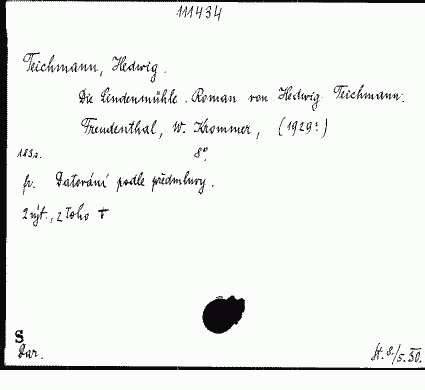 111434
Teichmann, Hedwig.
Die Lindenmühle. Roman von Hedwig Teichmann.
Freudenthal, W. Krommer, (1929?)
183s. 8°.
fr. Datování podle předmluvy.
2 výt., z toho
S
Dar.